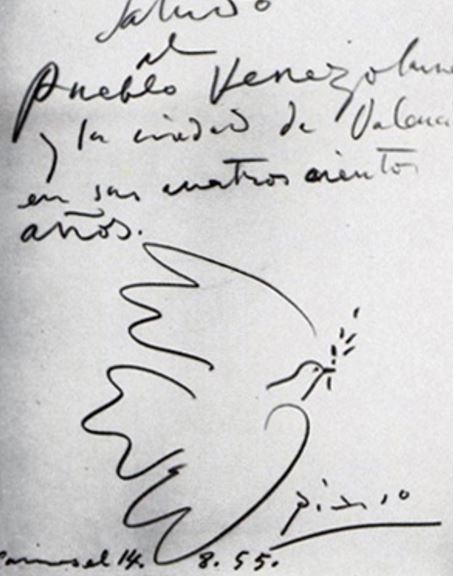 Saludo
al
Pueblo Venezolano
y la ciudad de Valencia
en sus cuatros cientos
años.
Picasso
Cannes el 14. 8. 55.